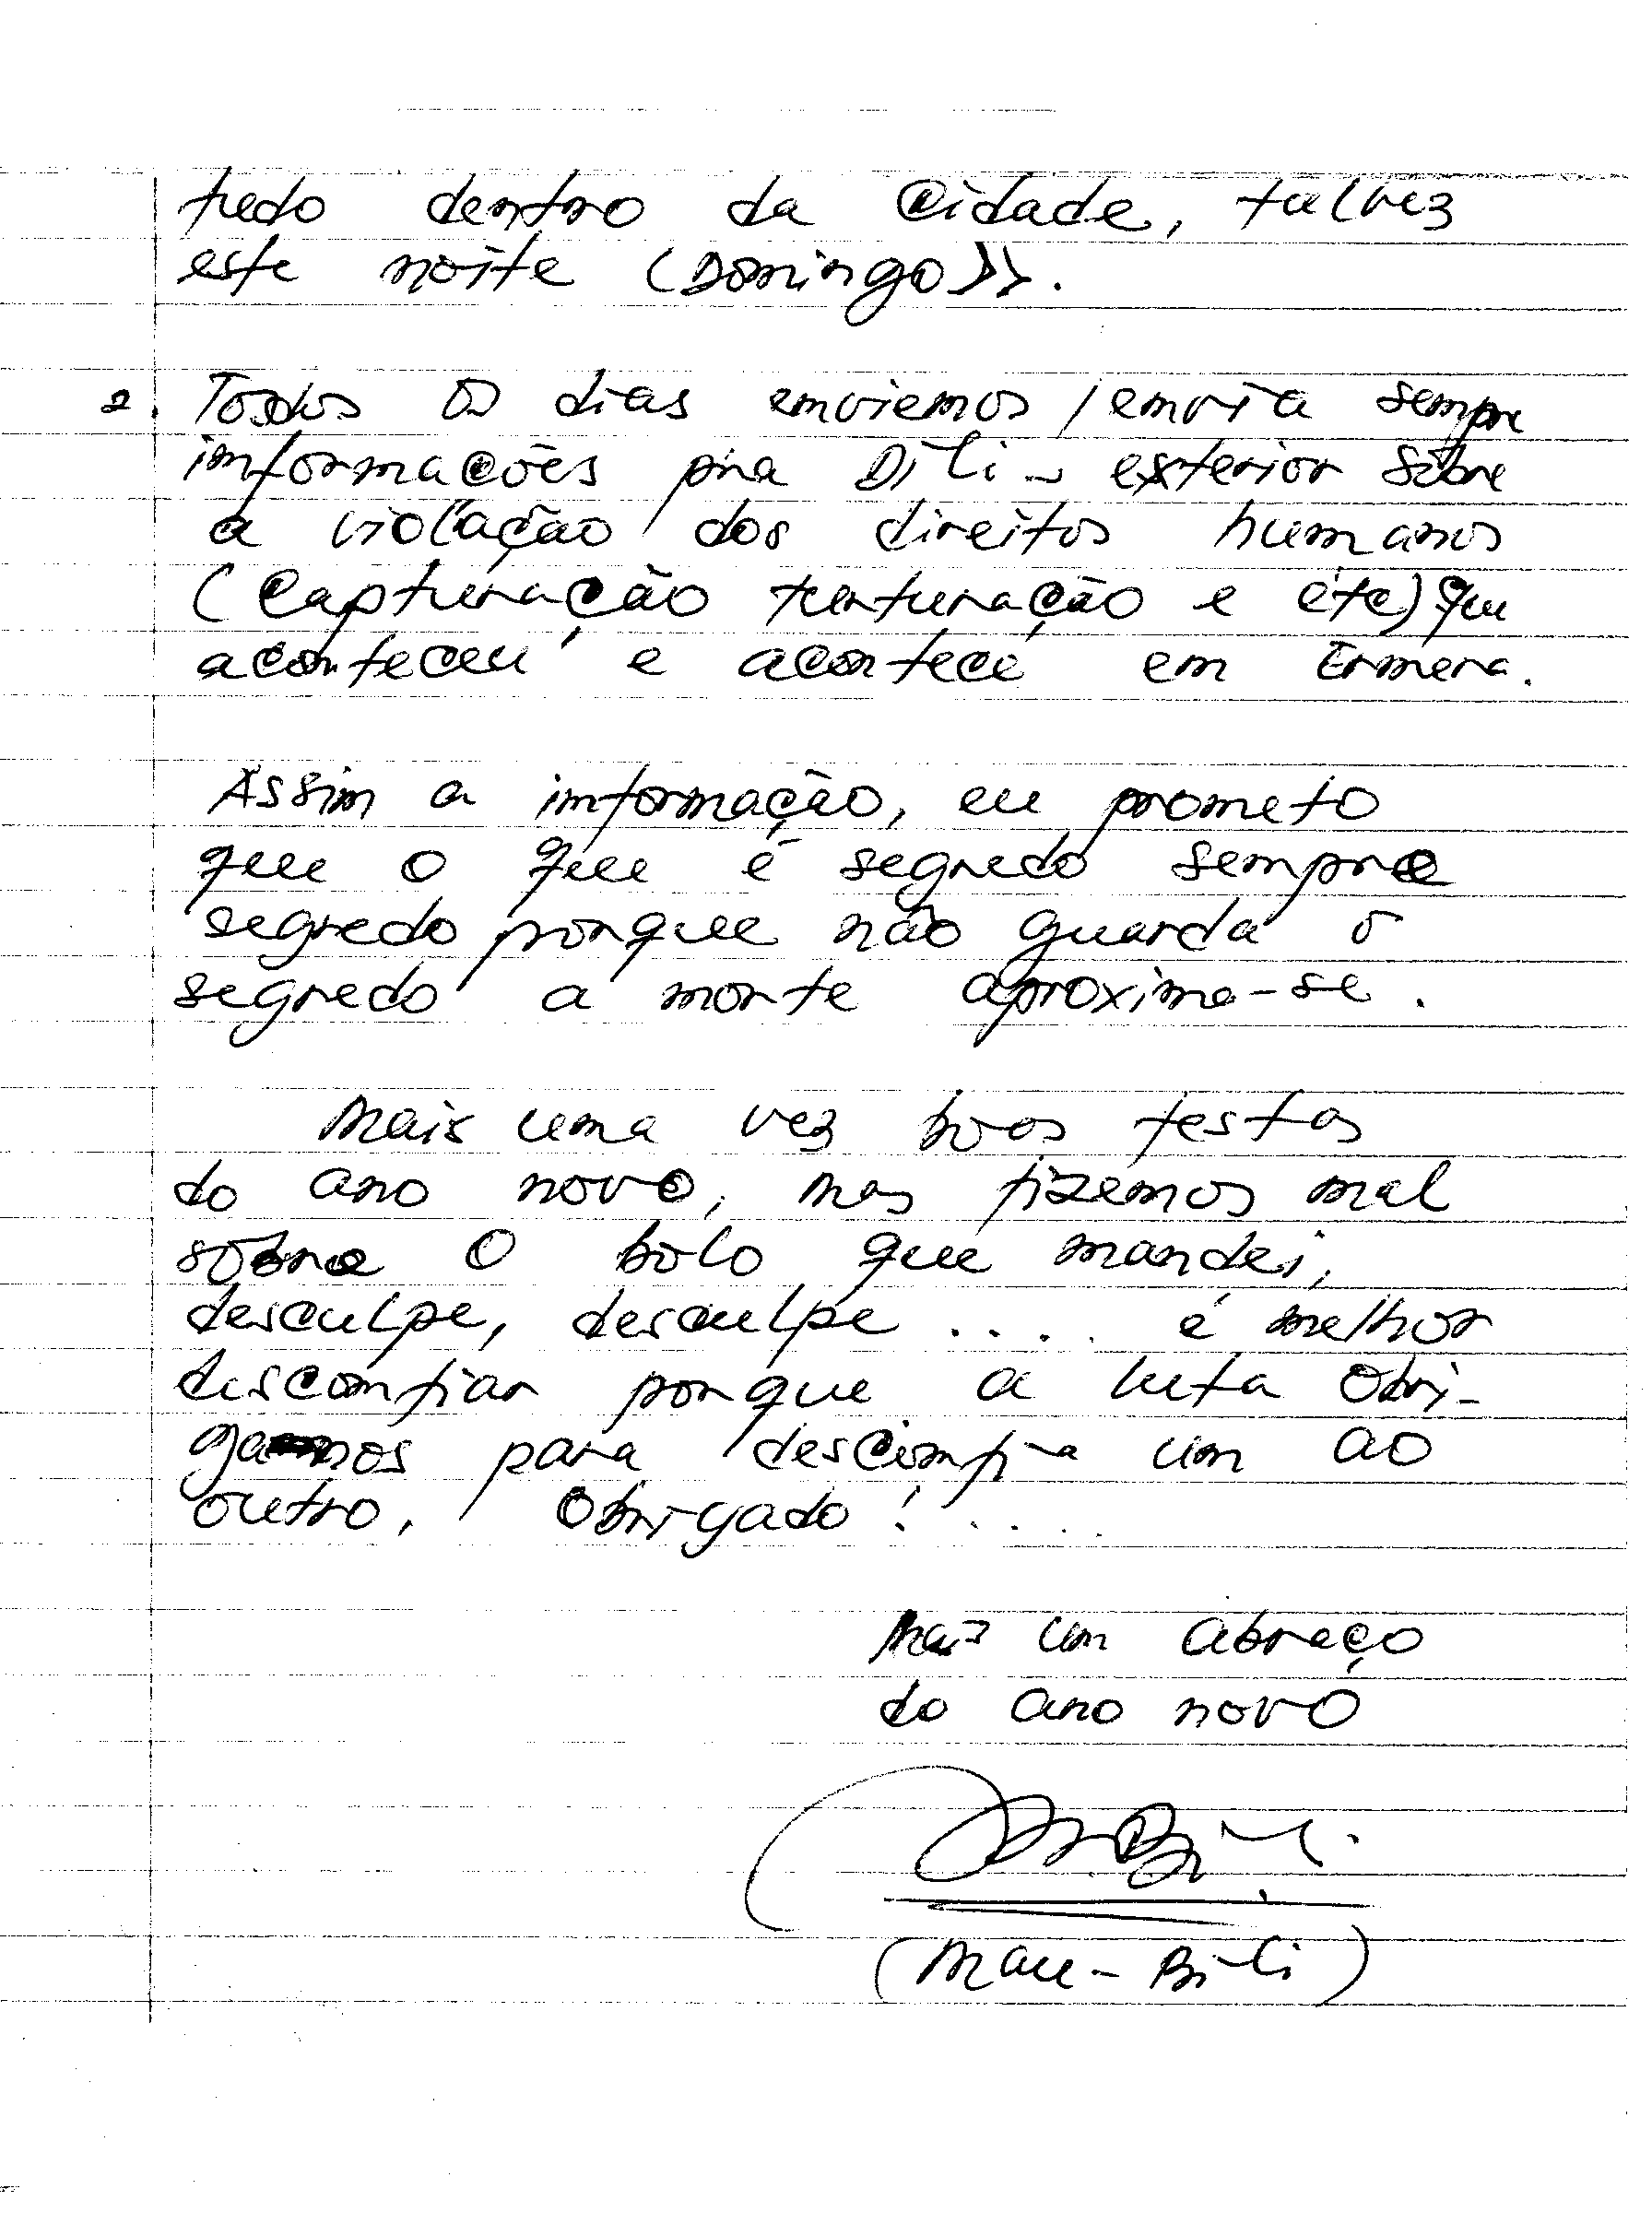 tudo dentro da Cidade, talvez
este noite (Domingo)).
2. Todos os dias enviemos / envia sempre
informações p'ra Díli - exterior sôbre
a violação dos direitos humanos
(Capturação turturação e etc) que
aconteceu e acontece em Ermera.
Assim a informação, eu prometo
que o que é segredo sempre
segredo porque não guarda o
segredo a morte aproxima-se.
Mais uma vez boas festas
do ano novo, mas fizemos mal
sôbre o bolo que mandei,
desculpe, desculpe .... é melhor
desconfiar porque a luta obri-
ganos para desconfia um ao
outro, Obrigado! ....
Mais um abraço
do ano novo
(Mau-Bili)